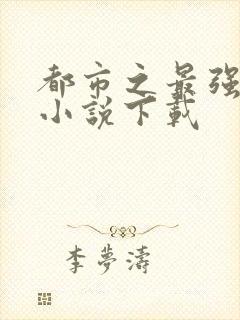 都市之最强
小說下載
李夢濤